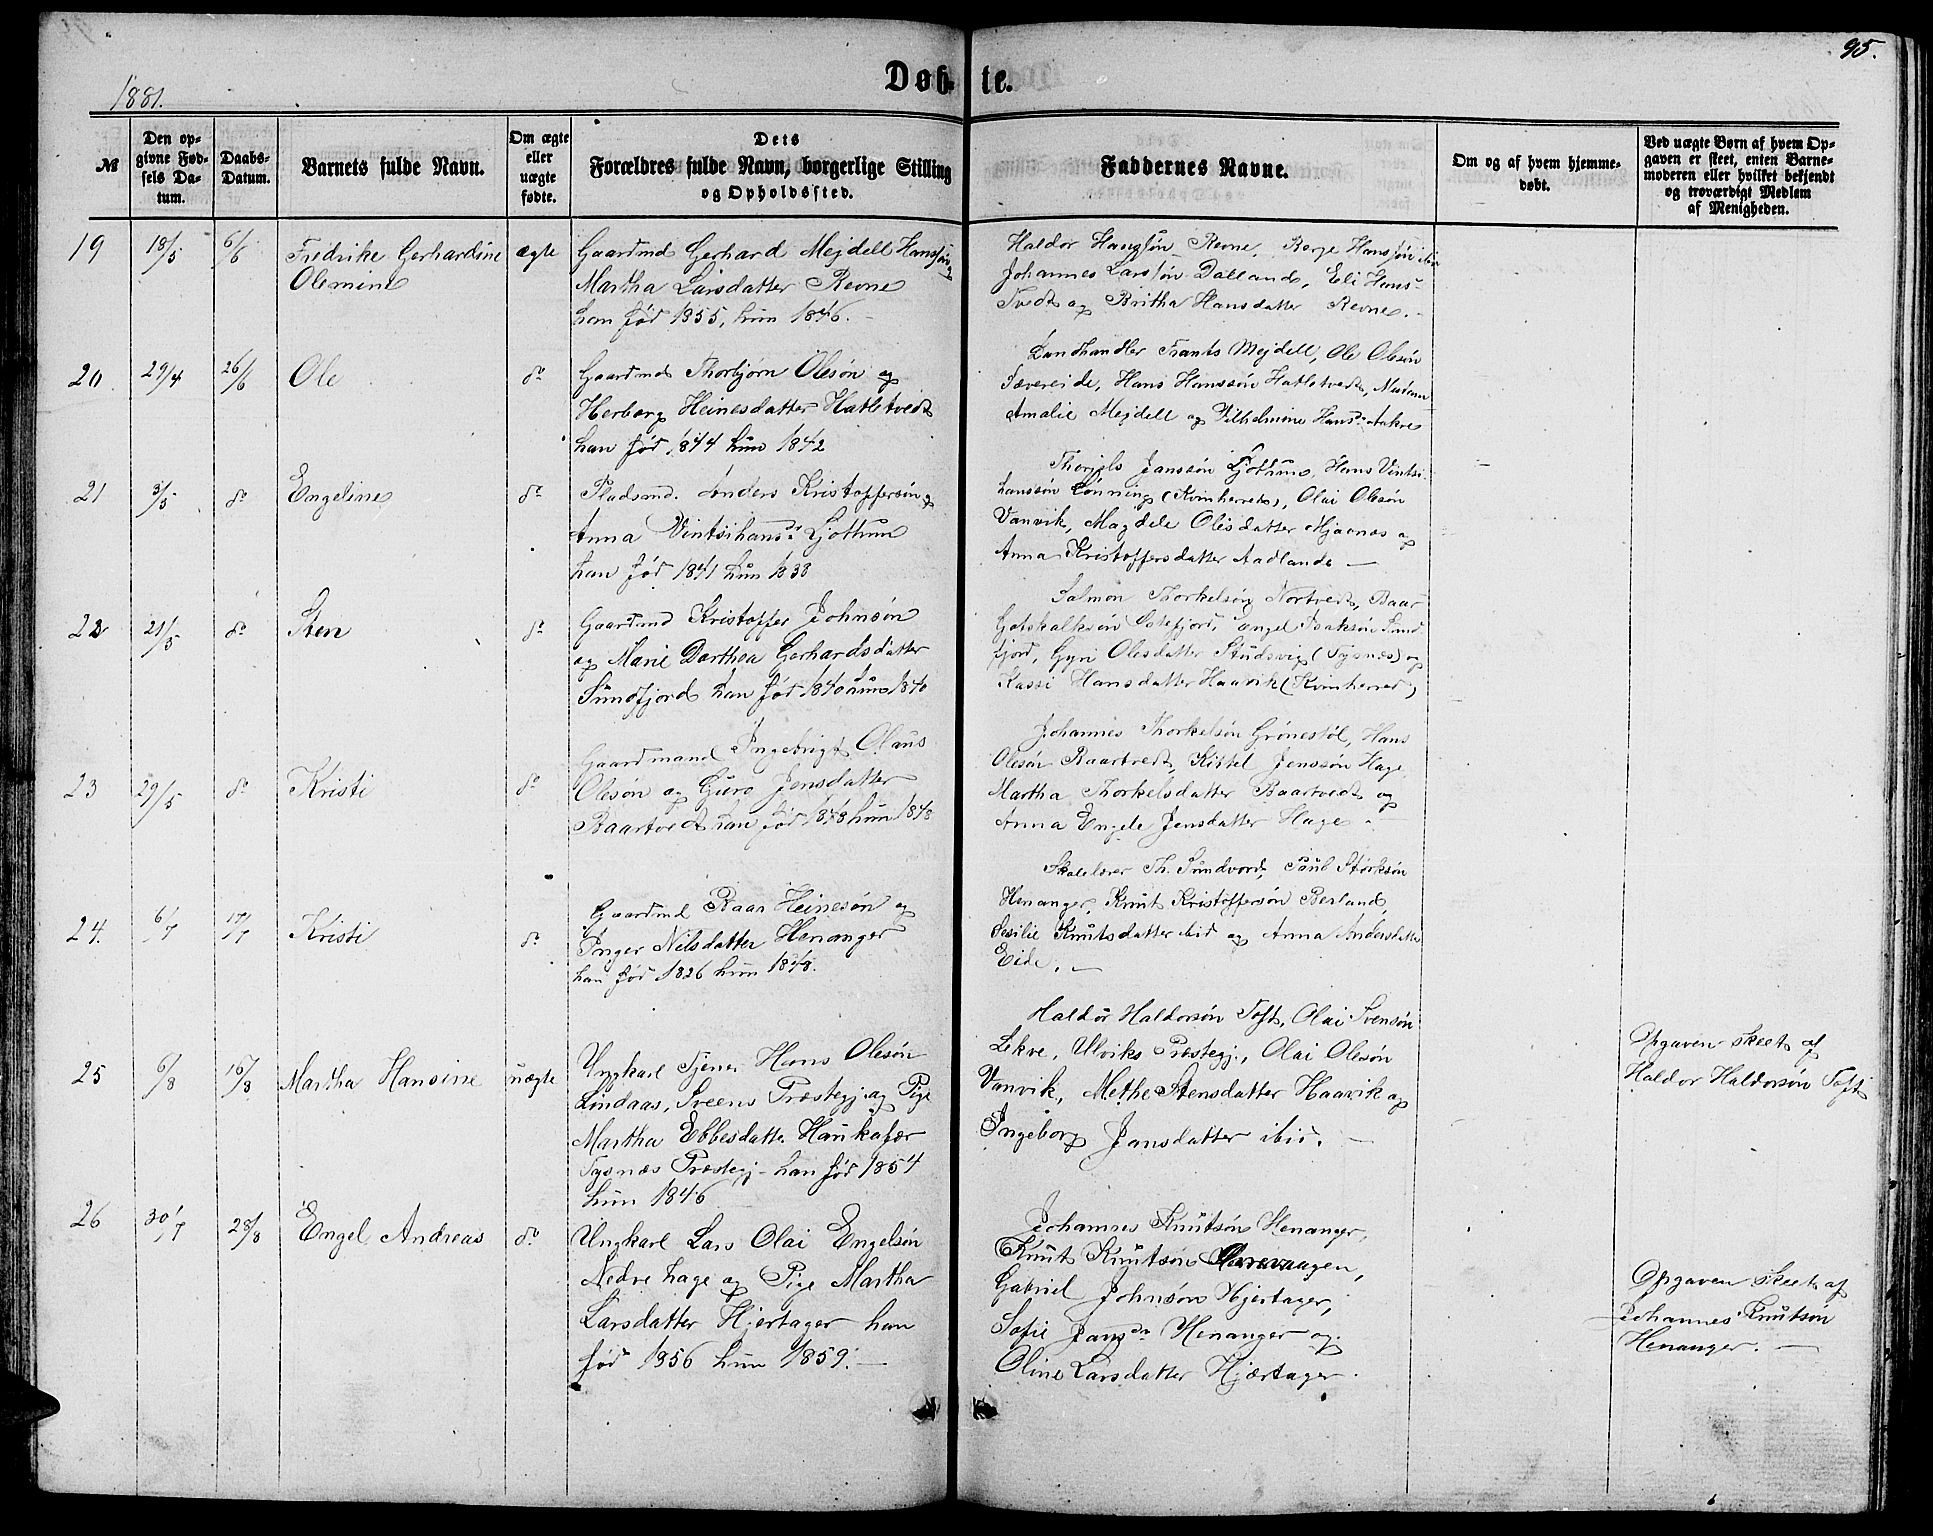 95.
1881.
Døb- te.
№
Den opgivne Fødsels Datum.
Daabs-Datum.
Barnets fulde Navn.
Om ægte eller uægte fødte.
Dets
Forældres fulde Navn, borgerlige Stilling
og Opholdssted.
Faddernes Navne.
Om og af hvem hjemmedøbt.
Ved uægte Børn af hvem Opgaven er skeet, enten Barnemoderen eller hvilket bekjendt og troværdigt Medlem af Menigheden.
19 18/5 6/6 Fredrike Gerhardine Olemine ægte
Gaardmd Gerhard Mejdell Hanssøn og
Martha Larsdatter Revne
han fød 1855, hun 1846. -
Haldor Hansøn Revne, Børge Hanssøn ibid
Johannes Larssøn Dalland, Eli Hans-
Tvedt og Britha Hansdatter Revne. -
20. 29/4 26/6 Ole do
Gaardmd Thorbjørn Olesøn og
Herborg Heinesdatter Hatletvedt
han fød 1844 hun 1842
Landhandler Frants Mejdell, Ole Olesøn
Sævereide, Hans Hanssøn Hatletvedt, Madam
Amalie Mejdell og Vilhelmine Hansdr Aakre
21 3/5 do Engeline do
Pladsmd. Anders Kristoffersøn og
Anna Vintsihansdr Gjøthun
han fød 1841 hun 1838
Janssøn Gjøthun, Hans Vintsi-
hanssøn Lønning (Kvinherred), Olai Olesøn
Vanvik, Magdele Olesdatter Mjaanes og
Anna Kristoffersdatter Aadland. -
22 21/5 do Sten do
Gaardmd Kristoffer Johnsøn
og Marie Dorthea Gerhardsdatter
Sundfjord han fød 1840 hun 1840
Salmon Thorkelsøn Nortvedt, Baar
Gotskalksøn Østefjord, Engel Isaksøn Sund-
fjord, Gyri Olesdatter Studsvig (Tysnæs) og
Kassi Hansdatter Haavik (Kvinherred)
23 29/5 do Kristi do
Gaardmand Ingebrigt Olaus
Olesøn og Guro Jensdatter
Baartvedt han fød 1848 hun 1848
Johannes Thorkelsøn Grønestøl, Hans
Olesøn Baartvedt, Kittel Jenssøn Hage,
Martha Thorkelsdatter Baartvedt og
Anna Engele Jensdatter Hage. -
24. 6/7 17/7 Kristi do
Gaardmd Baar Heinesøn og
Inger Nilsdatter Henanger
han fød 1826 hun 1848.
Skolelærer Th. Sundvord, Paul Størksøn
Henanger, Knut Kristoffersøn Berland,
Sesilie Knutsdatter ibid og Anna Andersdatter
Eide. -
25 6/8 16/8 Martha Hansine uægte
Ungkarl Tjener Hans Olesøn
Lindaas, Sveens Præstegj. og Pige
Martha Ebbesdatter Haukafær
Tysnæs Præstegj - han fød 1854
hun 1846
Haldor Haldorsøn Toft, Olai Svensøn
Lekve, Ulviks Præstegj., Olai Olesøn
Vanvik, Methe Stensdatter Haavik og
Ingeborg Jansdatter ibid. -
Opgaven skeet af
Haldor Haldorsøn Toft
26 30/7 28/8 Engel Andreas do
Ungkarl Lars Olai Engelsøn
Nedre hage og Pige Martha
Larsdatter Hjertager han
fød 1856 hun 1859. -
Johannes Knutsøn Henanger,
Knut Knutsøn
Gabriel Johnsøn Hjertager,
Sofie Jansdr Henanger og
Oline Larsdatter Hjærtager.
Opgaven skeet af
Johannes Knutsøn
Henanger. -